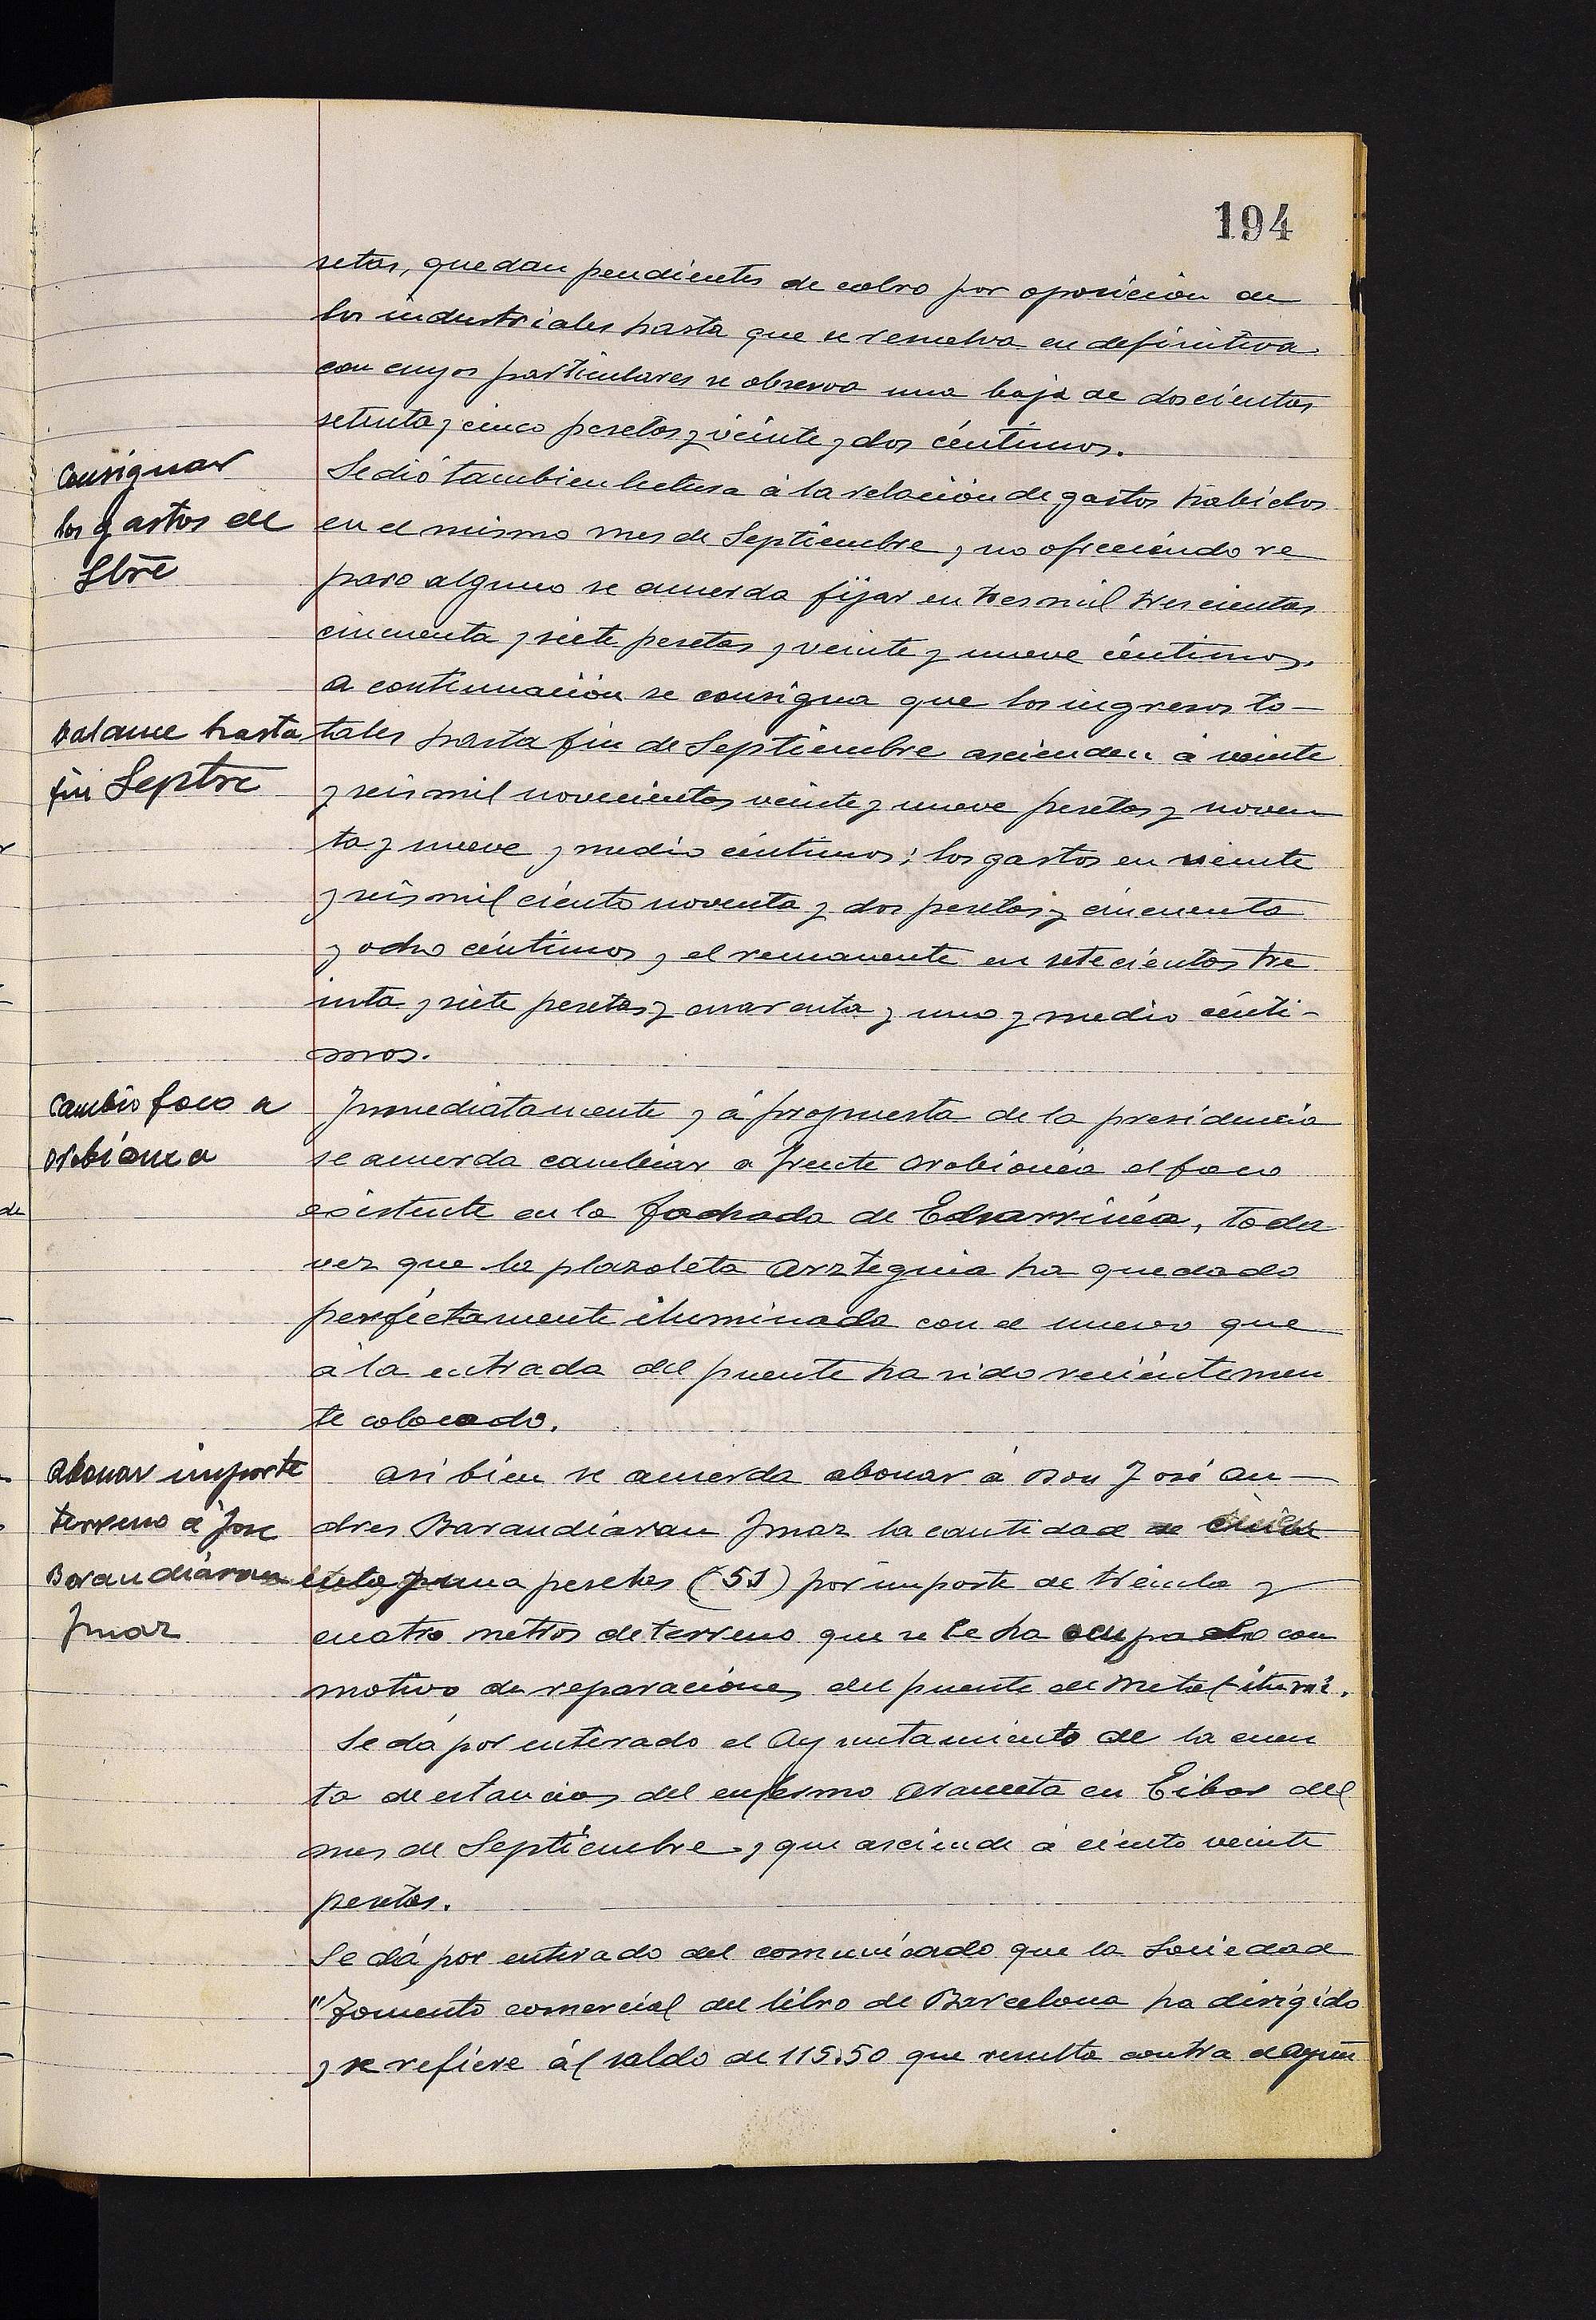 194
setas, quedan pendientes de cobro por oposición de
los industriales hasta que se resuelva en definitiva
con cuyos particulares se observa una baja de doscientas
setenta y cinco pesetas y veinte y dos céntimos.
Consignar
los gastos de
Sbre
Se dió tambien lectura á la relación de gastos habidos
en el mismo mes de Septiembre y no ofreciendo re
paro alguno se acuerda fijar en tres mil trescientas
cincuenta y siete pesetas y veinte y nueve céntimos.
A continuación se consigna que los ingresos to-
Balance hasta
fin Septre
tales hasta fin de Septiembre ascienden á veinte
y seis mil novecientas veinte y nueve pesetas y noven
ta y nueve y medio céntimos; los gastos en veinte
y seis mil ciento noventa y dos pesetas y cincuenta
y ocho céntimos y el remanente en setecientas tre
inta y siete pesetas y cuarenta y uno y medio cénti-
mos.
Cambio foco a
Orbianea
Inmediatamente y á propuesta de la presidencia
se acuerda cambiar a frente Orobionea el foco
existente en la fachada de Echarrinea, toda
vez que la plazoleta Arzteguia ha quedado
perfectamente iluminada con el nuevo que
á la entrada del puente ha sido recientemen
te colocado.
Abonar importe
terreno á Jose
Barandiaran
Imaz
Asi bien se acuerda abonar á Don José An-
dres Barandiaran Imaz la cantidad de
y una pesetas (51) por importe de treinta y
cuatro metros de terreno que se le ha ocupado con
motivo de reparaciones del puente de Metal iturri.
Se dá por enterado el Ayuntamiento de la cuen
ta de estancias del enfermo Arameta en Eibar del
mes de Septiembre, y que asciende á ciento veinte
pesetas.
Se dá por enterado del comunicado que la Sociedad
"Fomento comercial del libro de Barcelona ha dirigido
y se refiere ál saldo de 115.50 que resulta contra el Ayun